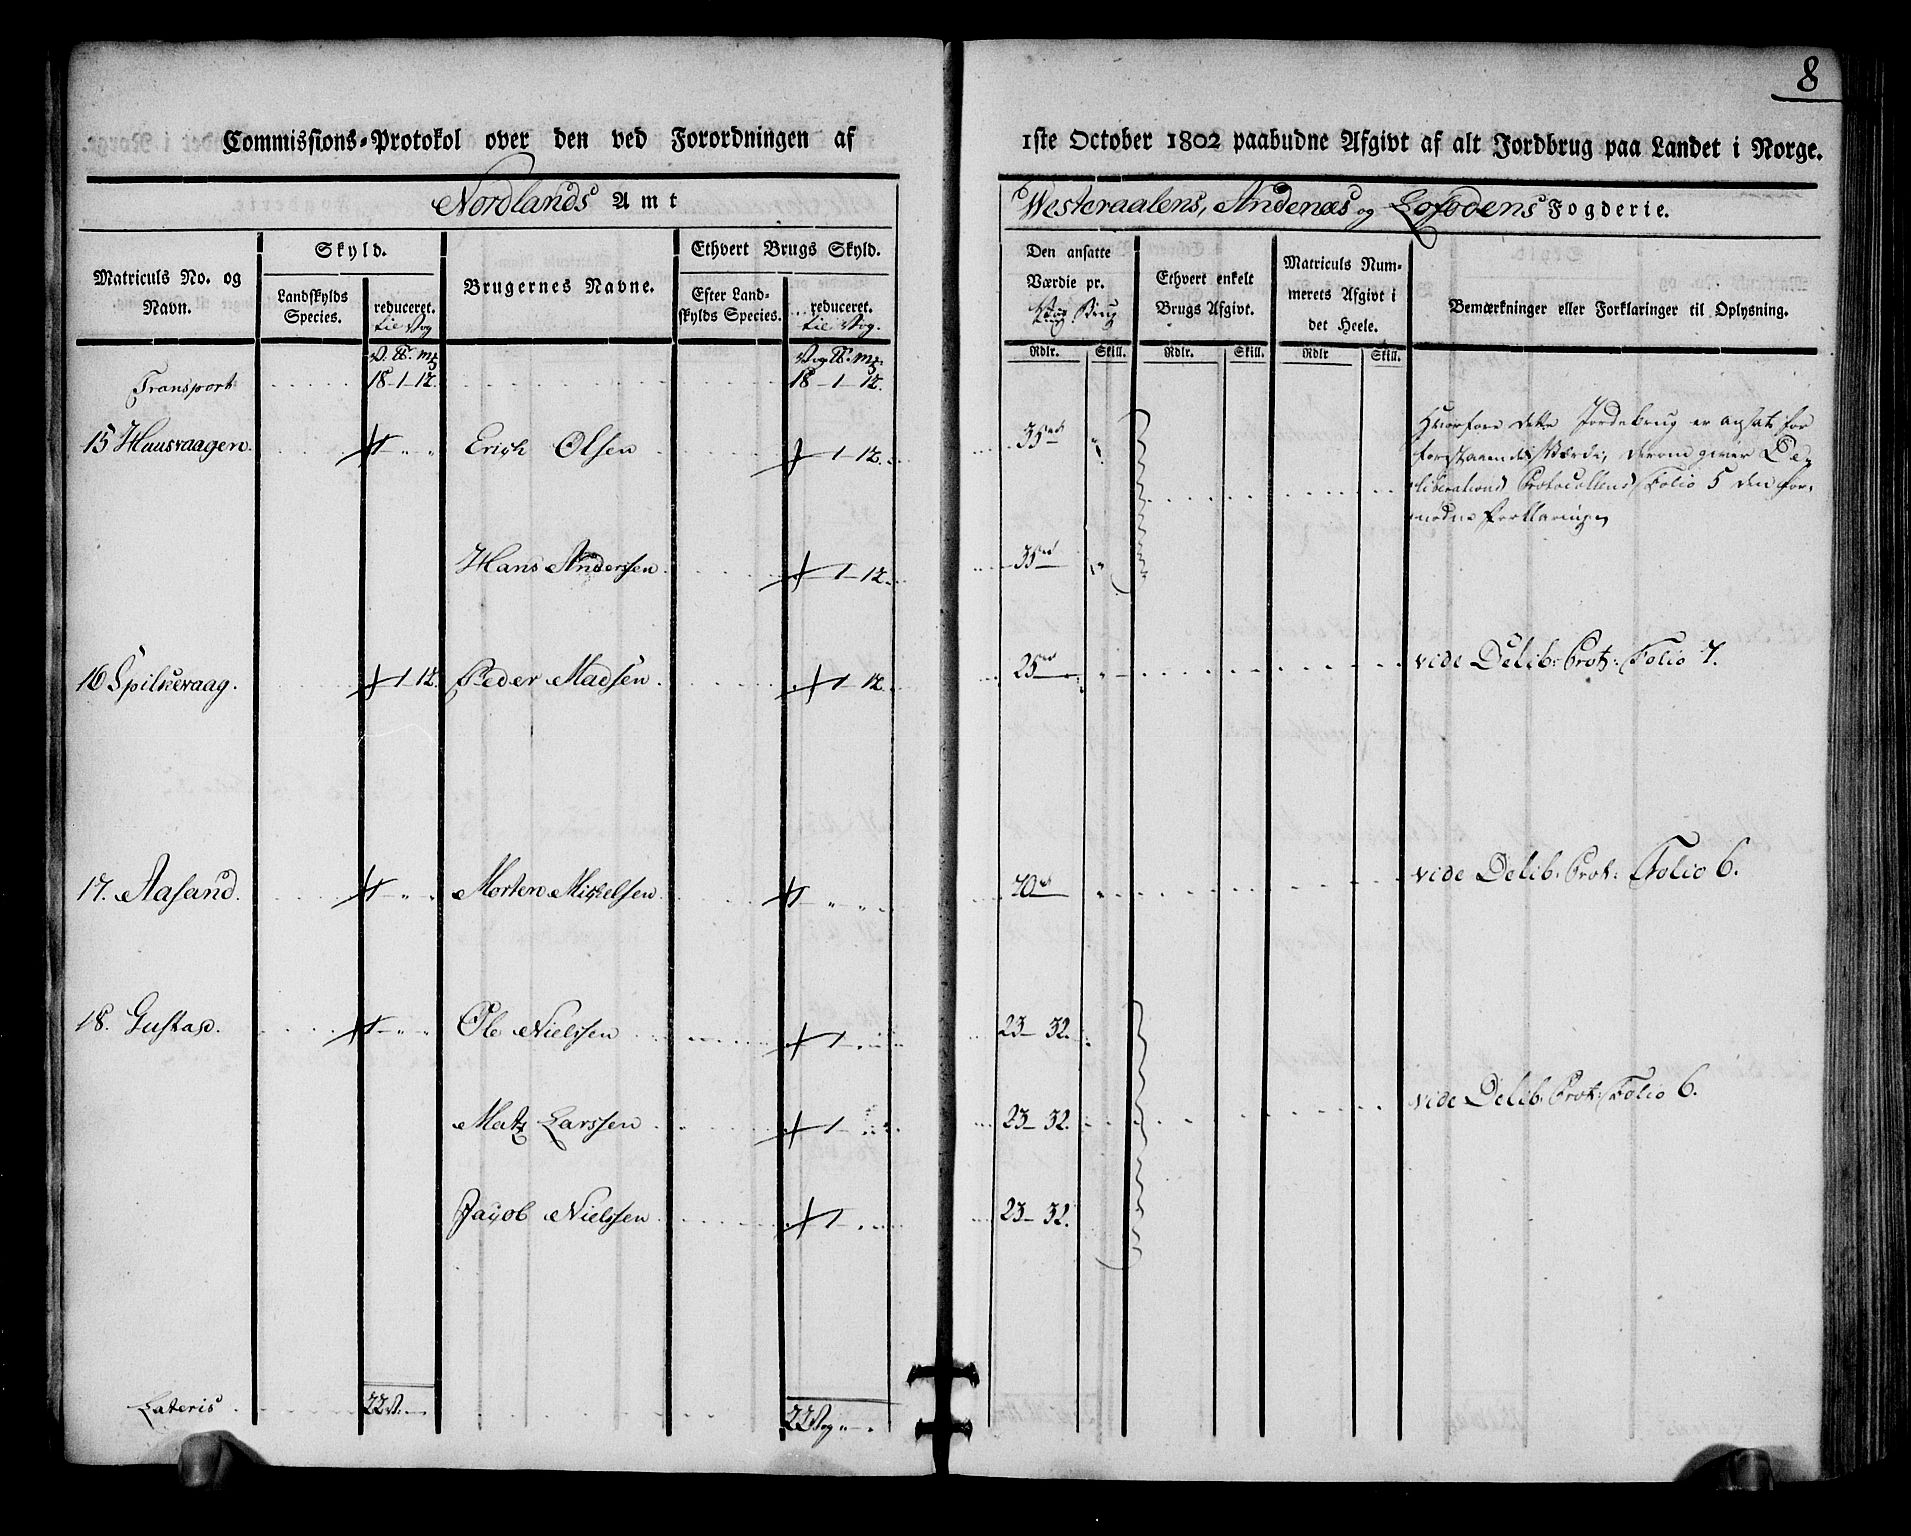 8
Commissions-Protokol over den ved Forordningen af 1ste October 1802 paabudne Afgivt af alt Jordbrug paa Landet i Norge.
Nordlands Amt
Westeraalens, Andenæs og Lofodens Fogderie.
Matriculs No. og Navn.
Skyld.
Landskylds Species.
reduceret. til Vog
Brugernes Navne.
Ethvert Brugs Skyld.
Efter Landskylds Species.
reduceret. til Vog.
Den ansatte Værdie pr. Brug
Ethvert enkelt Brugs Afgivt.
Matriculs Nummerets Afgivt i det Heele.
Bemærkninger eller Forklaringer til Oplysning.
Rdlr. Skill. Rdlr. Skill. Rdlr Skill.
Transport 18-1-12. 18-1-12.
15 Hausvaagen. 1 " " Erich Olsen 1-12. 35 "
Hvorfore dette Jordebrug er ansat for
forstaaende Værdie, derom giver De-
liberations Protocollens Folio 5 den for-
nødne forklaring
Hans Anderssen 1-12. 35 "
16 Spilkevaag. 1 12. Peder Madsen 1-12. 25 " vide Delib: Prot: Folio 7.
17. Aasand. 1 " " Morten Mikelsen 1 " " 40 " vide Delib: Prot: Folio 6.
18. Gustad. 1 " " Ole Nielssen 1 23-32.
Matz Larssen 1 23-32. vide Delib: Prot: Folio 6.
Jacob Nielssen 1 23-32.
Lateris 22 V. 22 Vog " "